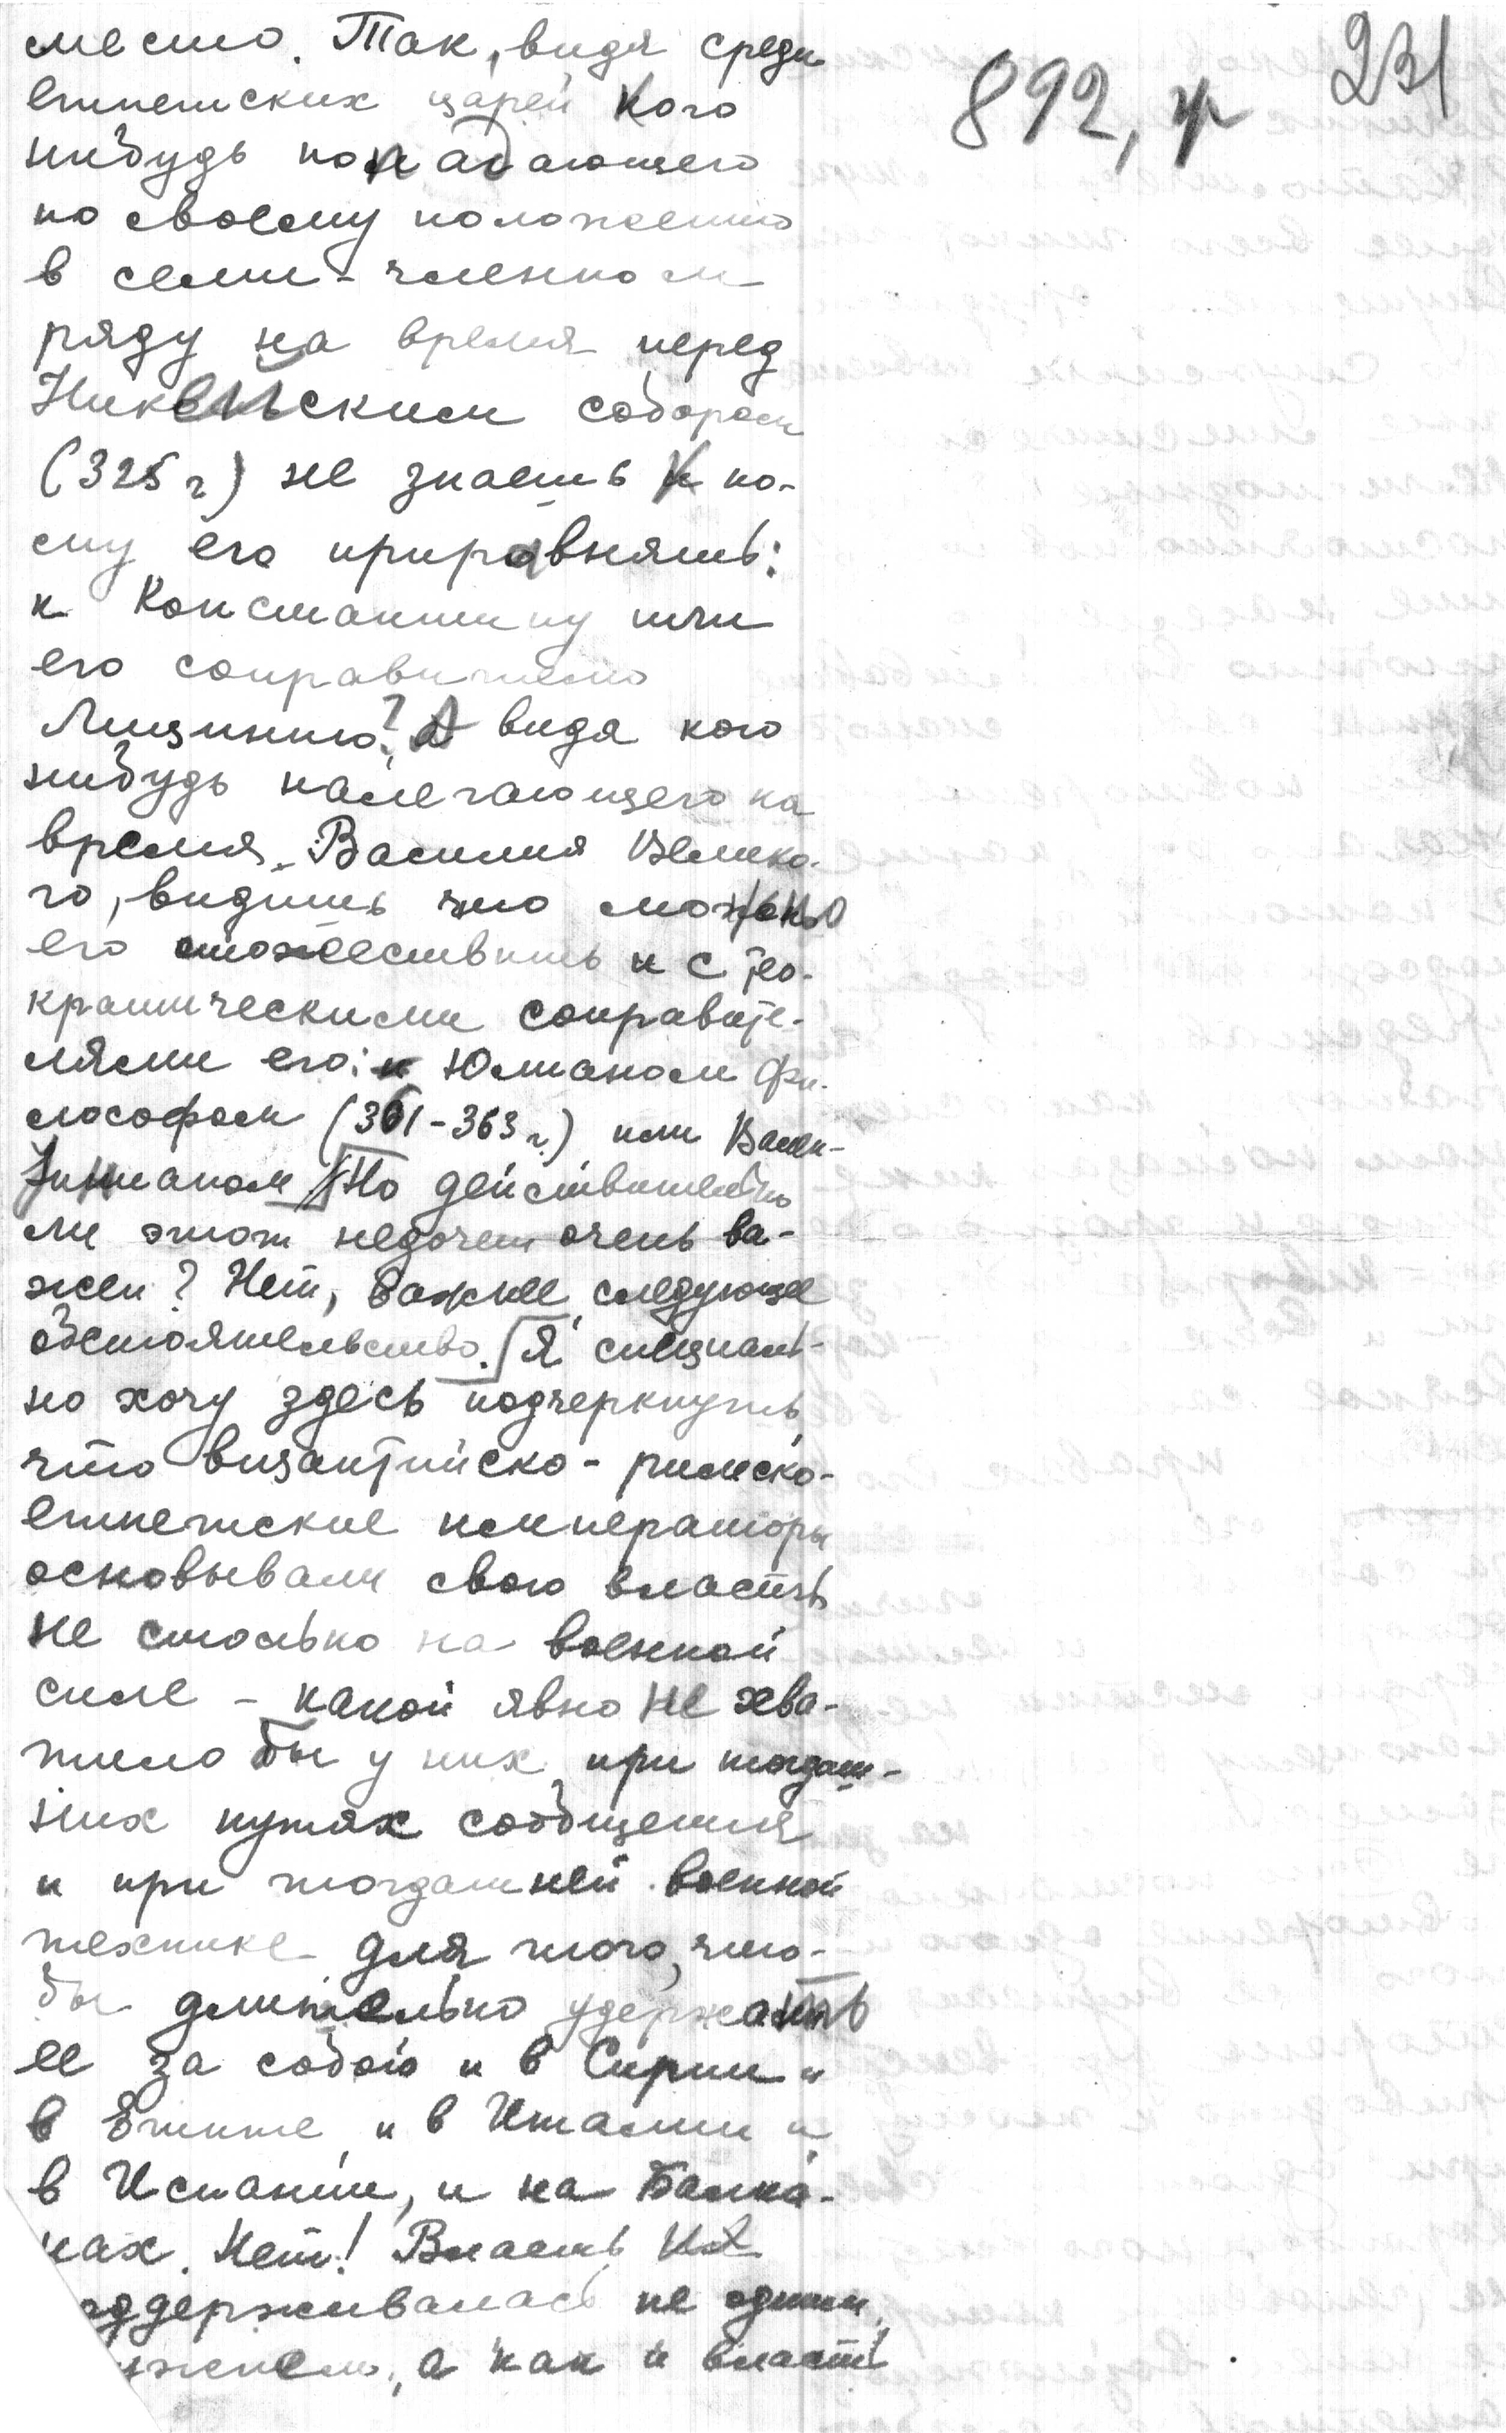 231
892, г
место. Так, видя среди
египетских царей кого
нибудь попадающего
по своему положению
в семи-членном
ряду на время перед
Никейским собором
(325 г) не знаешь к ко-
му его приравнять:
к Константину или
его соправителю
Лицинию? А видя кого
нибудь налегающего на
время Василия Велико-
го, видишь что можно
его отожествить и с тео-
кратическими соправите-
лями его: Юлианом Фи-
лософом (361-363 г.) или Вален-
тинианом Но действительно
ли этот недочет очень ва-
жен? Нет, важнее следующее
обстоятельство. Я специаль-
но хочу здесь подчеркнуть,
что византийско-римско-
египетские императоры
основывали свою власть
не столько на военной
силе - какой явно не хва-
тило бы у них при тогдаш-
них путях сообщения
и при тогдашней военной
технике для того, что-
бы длительно удержать
ее за собою и в Сирии и
в Египте и в Италии и
в Испании, и на Балка-
нах. Нет! Власть их
оддерживалась не одним
, а как и власть